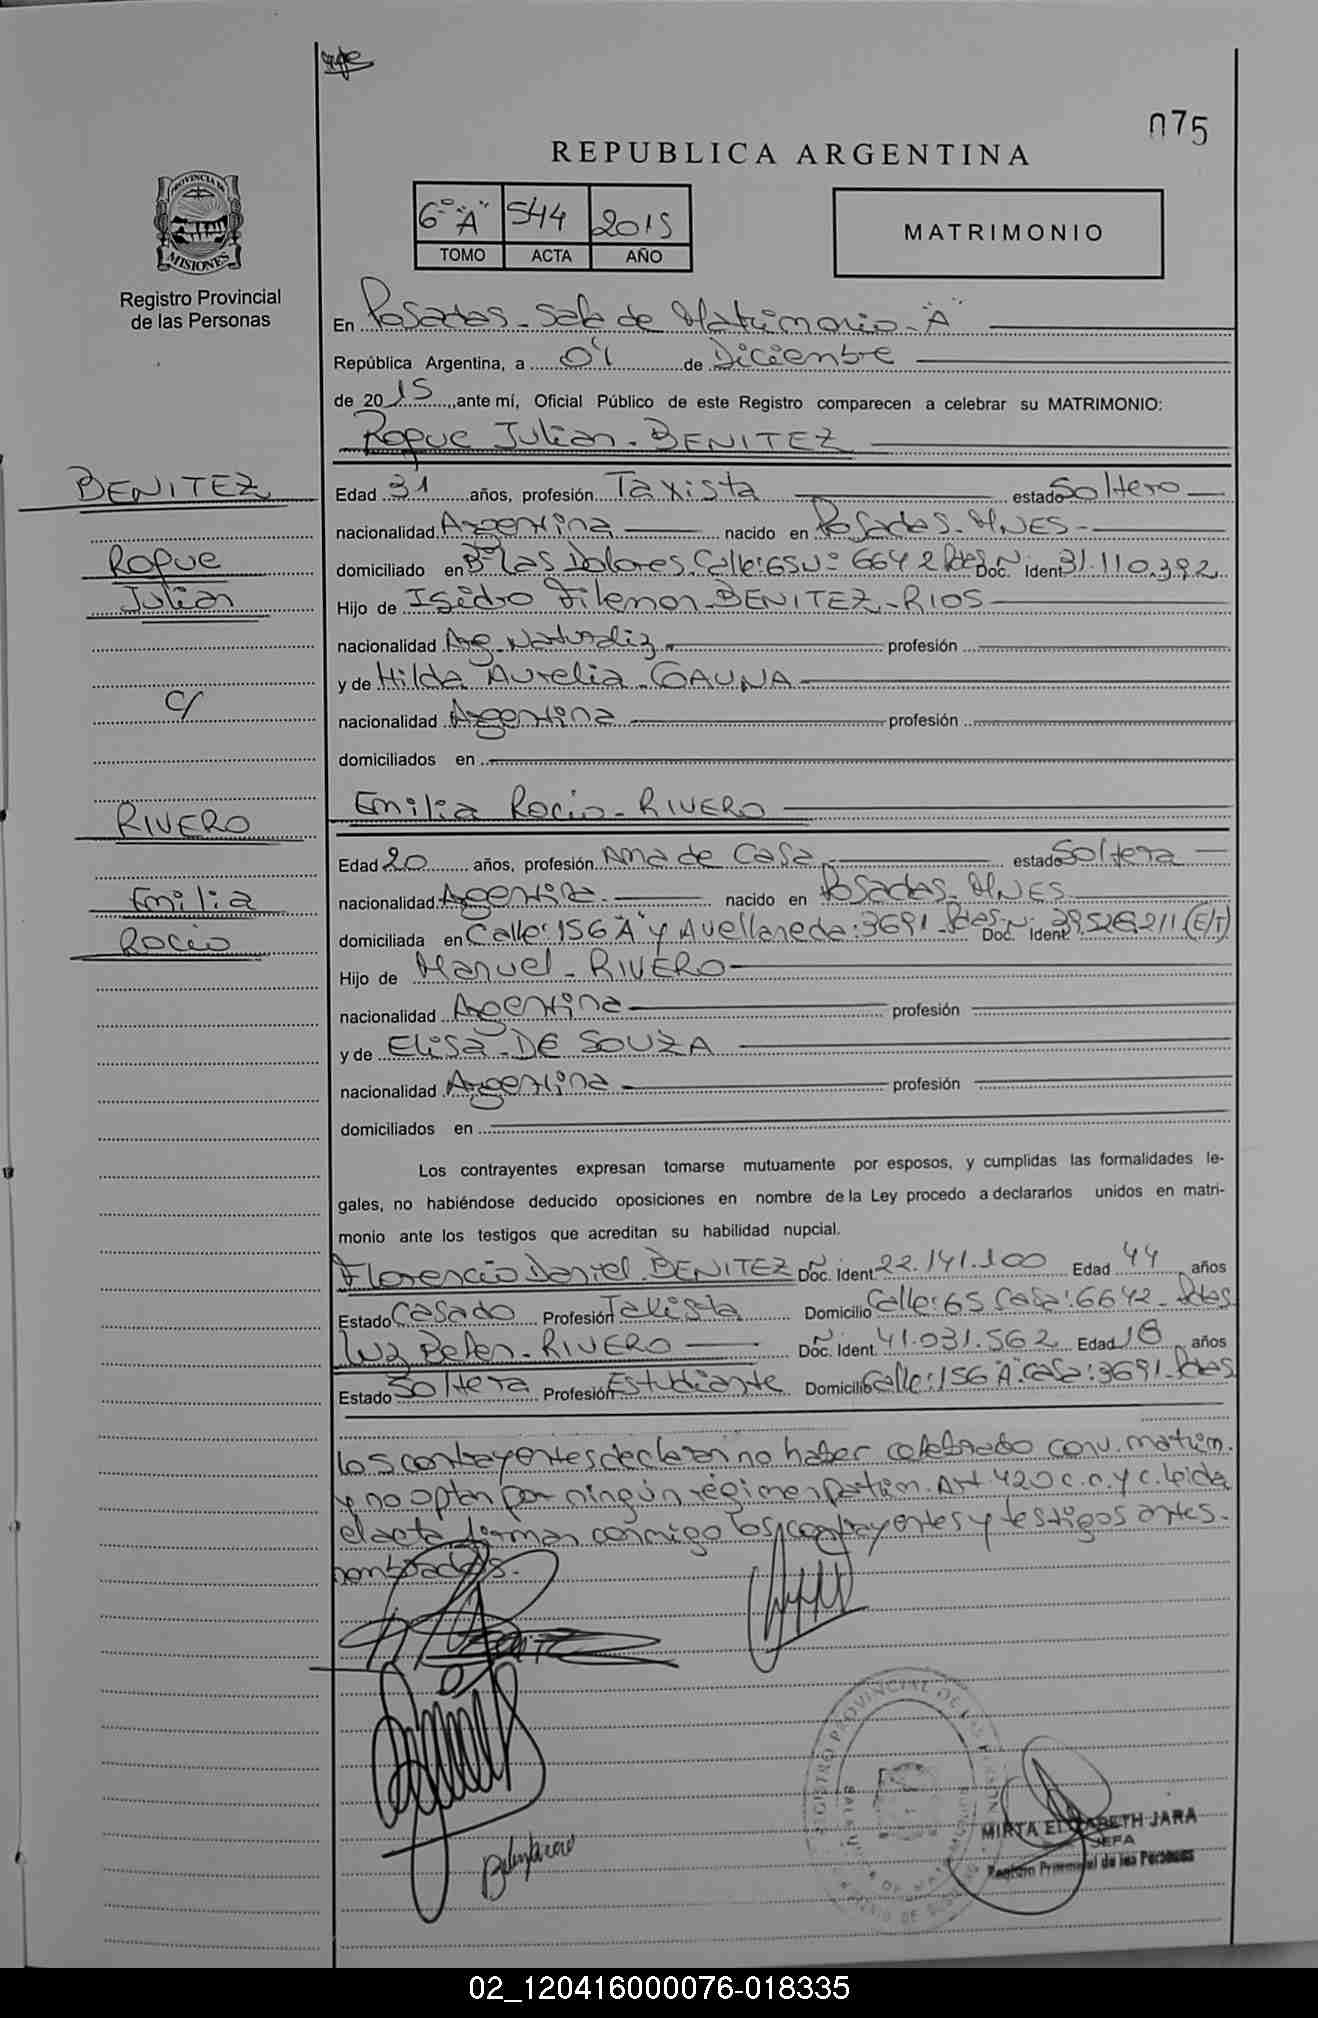 075
REPUBLICA ARGENTINA
PROVINCIA DE
MISIONES
Registro Provincial
de las Personas
6º "A" 544 2015
TOMO ACTA AÑO
MATRIMONIO
En Posadas - Sala de Matrimonio - "A"
República Argentina, a 04 de Diciembre
de 2015, ante mí, Oficial Público de este Registro comparecen a celebrar su MATRIMONIO:
Roque Julian - BENITEZ
BENITEZ
Roque
Julian
C/
RIVERO
Emilia
Rocio
Edad 31 años, profesión Taxista estado Soltero
nacionalidad Argentina nacido en Posadas - MNES -
domiciliado en Bº Las Dolores. Calle: 65 Nº 6642 Pdas Doc. Ident. 31.110.392
Hijo de Isidro Filemon - BENITEZ - RIOS
nacionalidad Arg. Naturaliz. profesión
y de Hilda Aurelia - GAUNA
nacionalidad Argentina profesión
domiciliados en
Emilia Rocio - RIVERO
Edad 20 años, profesión Ama de Casa estado Soltera
nacionalidad Argentina nacido en Posadas - MNES
domiciliada en Calle: 156 "A" y Avellaneda: 3691 - Pdas - Doc. Ident. 39.526.211 (E/T)
Hijo de Manuel - RIVERO
nacionalidad Argentina profesión
y de Elisa - DE SOUZA
nacionalidad Argentina profesión
domiciliados en
Los contrayentes expresan tomarse mutuamente por esposos, y cumplidas las formalidades le-
gales, no habiéndose deducido oposiciones en nombre de la Ley procedo a declararlos unidos en matri-
monio ante los testigos que acreditan su habilidad nupcial.
Florencio Daniel - BENITEZ Doc. Ident. 22.141.100 Edad 44 años
Estado Casado Profesión Taxista Domicilio Calle: 65 Casa: 6642 - Pdas
Luz Belen - RIVERO Doc. Ident. 41.031.562 Edad 18 años
Estado Soltera Profesión Estudiante Domicilio Calle: 156 "A" Casa: 3691 - Pdas
Los contrayentes declaran no haber celebrado conv. matrim.
y no optan por ningún régimen patrim. Art 420 c.c. y c. Leida
el acta firman conmigo los contrayentes y testigos antes.
nombrados.
MIRTA ELIZABETH JARA
JEFA
Registro Provincial de las Personas
02_120416000076-018335